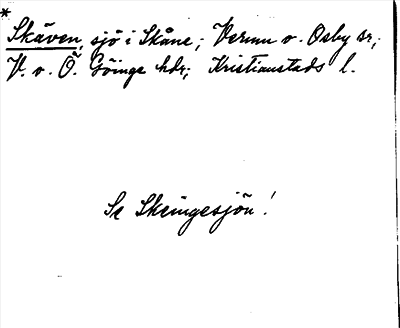 *
Skäven, sjö i Skåne; Verum o. Osby sr;
V. o. Ö. Göinge hdr; Kristianstads l.
Se Skeingesjön!